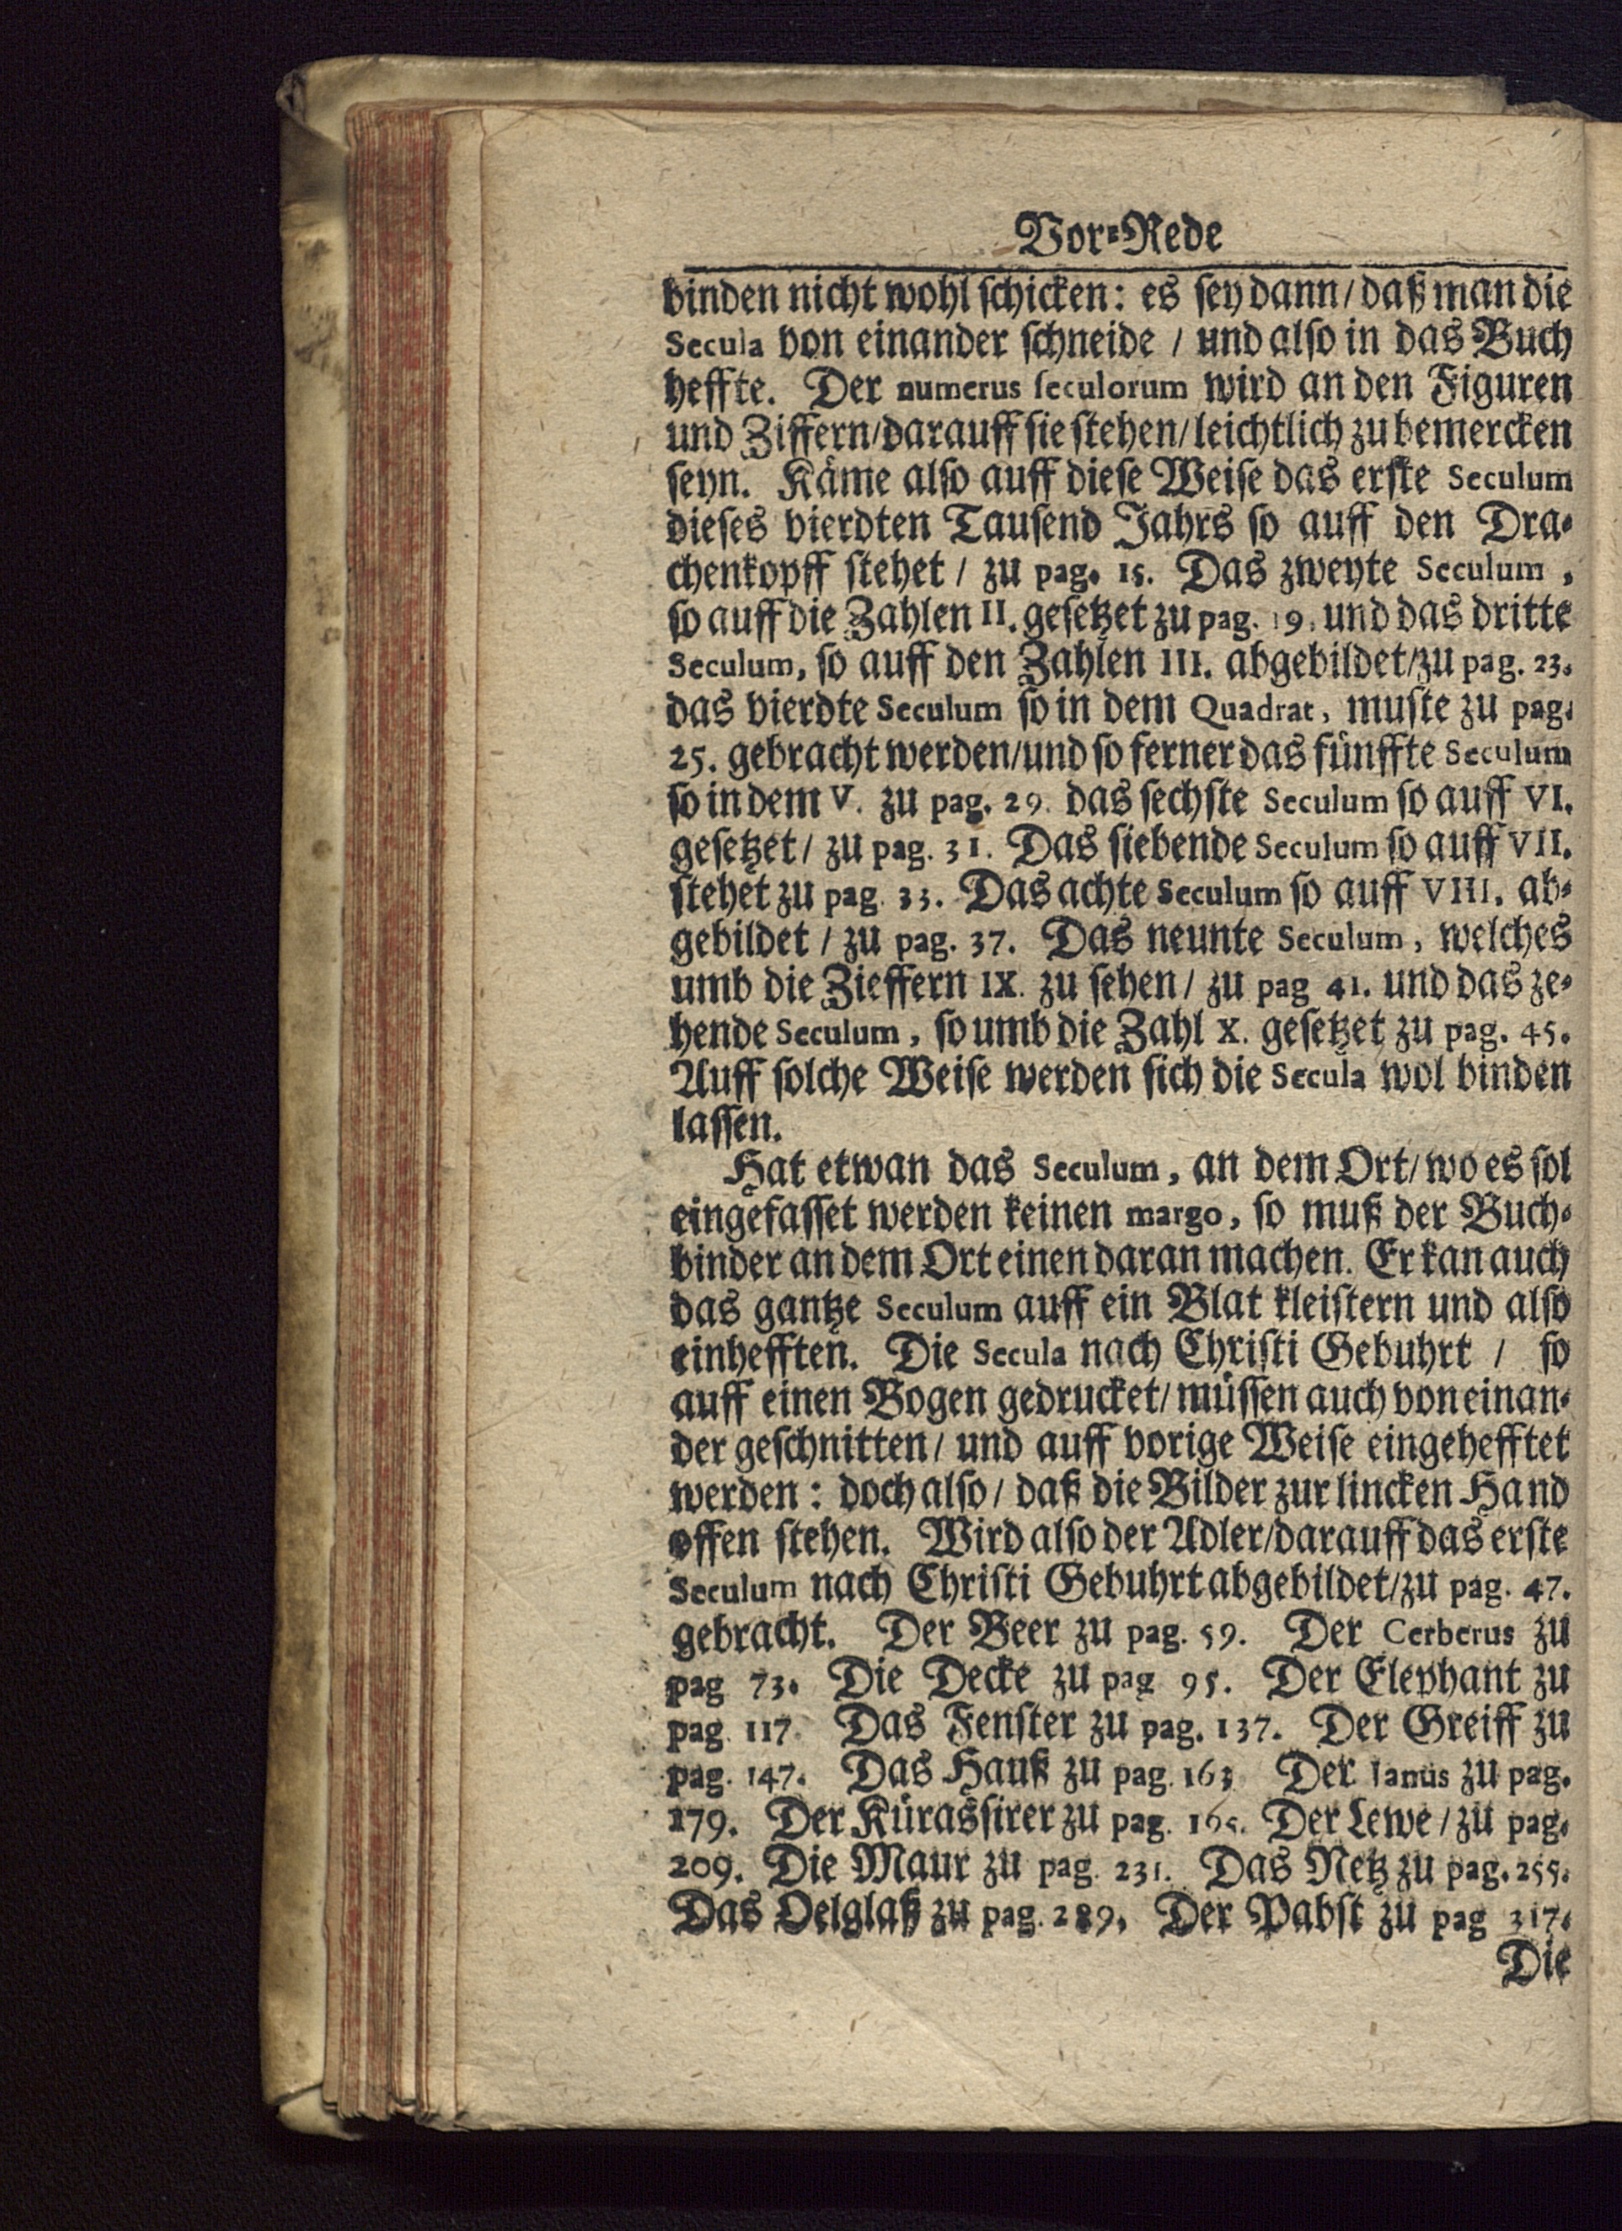 Vor-Rede
binden nicht wohl schicken: es sey dann / daß man die
Secula von einander schneide / und also in das Buch
heffte. Der numerus seculorum wird an den Figuren
und Ziffern / darauff sie stehen / leichtlich zu bemercken
seyn. Käme also auff diese Weise das erste Seculum
dieses vierdten Tausend Jahrs so auff den Dra-
chenkopff stehet / zu pag. 15. Das zweyte Seculum,
so auff die Zahlen II. gesetzet zu pag. 19. und das dritte
Seculum, so auff den Zahlen III. abgebildet / zu pag. 23.
das vierdte Seculum so in dem Quadrat, muste zu pag.
25. gebracht werden / und so ferner das fünffte Seculum
so in dem V. zu pag. 29. das sechste Seculum so auff VI.
gesetzet / zu pag. 31. Das siebende Seculum so auff VII.
stehet zu pag. 33. Das achte Seculum so auff VIII. ab-
gebildet / zu pag. 37. Das neunte Seculum, welches
umb die Zieffern IX. zu sehen / zu pag 41. und das ze-
hende Seculum, so umb die Zahl X. gesetzet zu pag. 45.
Auff solche Weise werden sich die Secula wol binden
lassen.
Hat etwan das Seculum, an dem Ort / wo es sol
eingefasset werden keinen margo, so muß der Buch-
binder an dem Ort einen daran machen. Er kan auch
das gantze Seculum auff ein Blat kleistern und also
einhefften. Die Secula nach Christi Gebuhrt / so
auff einen Bogen gedrucket / müssen auch von einan-
der geschnitten / und auff vorige Weise eingehefftet
werden: doch also / daß die Bilder zur lincken Hand
offen stehen. Wird also der Adler / darauff das erste
Seculum nach Christi Gebuhrt abgebildet / zu pag. 47.
gebracht. Der Beer zu pag. 59. Der Cerberus zu
pag 73. Die Decke zu pag 95. Der Elephant zu
pag. 117. Das Fenster zu pag. 137. Der Greiff zu
pag. 147. Das Hauß zu pag. 163 Der Ianus zu pag.
179. Der Kürassirer zu pag. 195. Der Lewe / zu pag.
209. Die Maur zu pag. 231. Das Netz zu pag. 255.
Das Oelglaß zu pag. 289. Der Pabst zu pag 317.
Die